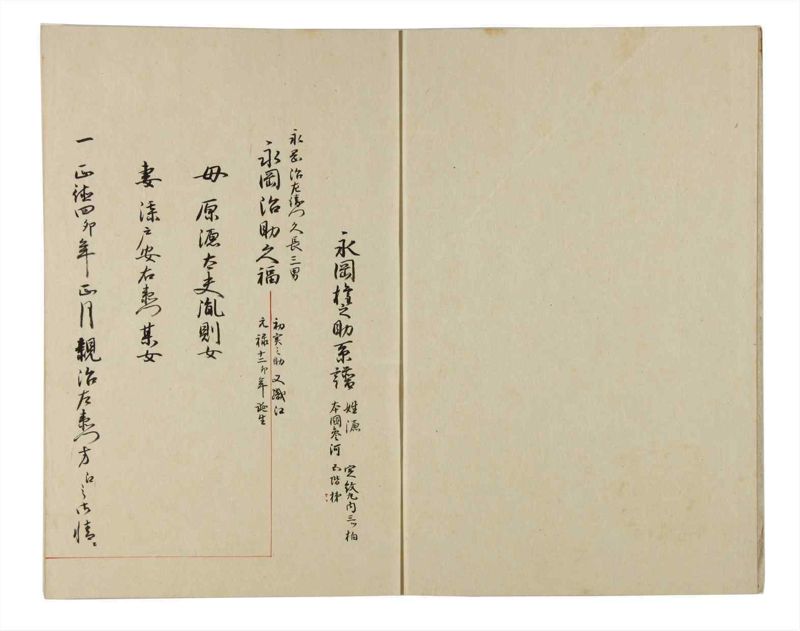 永岡権之助系譜
姓源
本国参河
定紋丸内三柏
永岡治左衛門久長三男
永岡治助久福
初
之助 又織江
元禄十二卯年誕生
母 原源太夫胤則女
妻 安右衛門某女
一 正徳四 年正月親治左衛門方